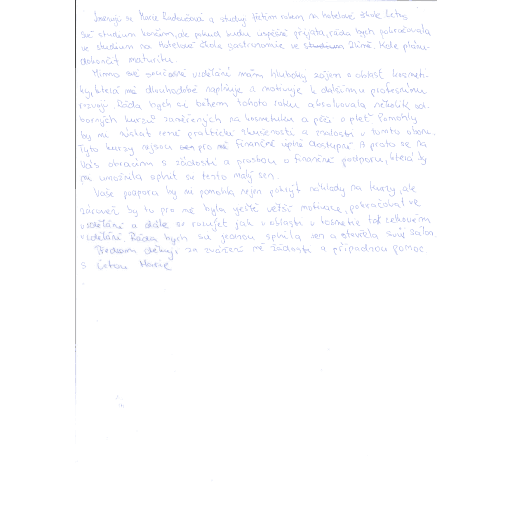 Jmenuji se a studuji třetím rokem na Hotelové škole
Své studium končím, ale pokud budu úspěšně přijata, ráda bych pokračovala
ve studiu na Hotelové škole gastronomie ve Zlíně, kde plánuji
dokončit maturitu.
Mimo své současné vzdělání mám hluboký zájem o oblast kosmeti-
ky, která mě dlouhodobě naplňuje a motivuje k dalšímu profesnímu
rozvoji. Ráda bych si během tohoto roku absolvovala několik od-
borných kurzů zaměřených na kosmetiku a péči o pleť. Pomohly
by mi získat cenné praktické zkušenosti a znalosti v tomto oboru.
Tyto kurzy nejsou pro mě finančně úplně dostupné. A proto se na
Vás obracím s žádostí a prosbou o finanční podporu, která by
mi umožnila splnit si tento malý sen.
Vaše podpora by mi pomohla nejen pokrýt náklady na kurzy, ale
zároveň by to pro mě byla ještě větší motivace, pokračovat ve
vzdělání a dále se rozvíjet jak v oblasti kosmetiky tak celkovém
vzdělání. Ráda bych si jednou splnila sen a otevřela svůj salon.
Předem děkuji za zvážení mé žádosti a případnou pomoc
S úctou